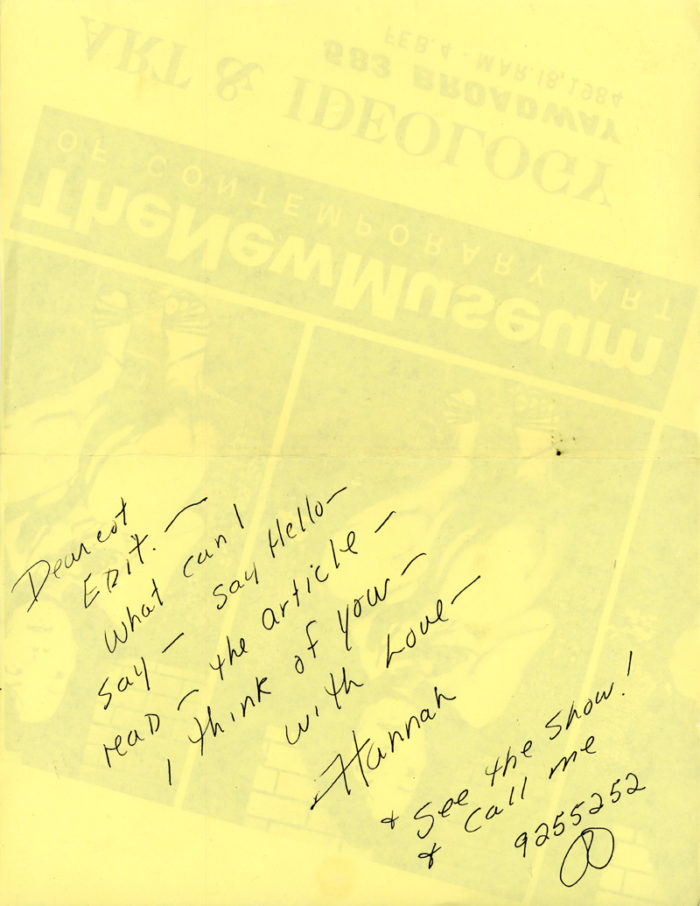 FEB.4 - MAR.18,1984
583 BROADWAY
ART & IDEOLOGY
OF CONTEMPORARY ART
TheNewMuseum
Dearest
EDIT. —
What can I
say — say Hello —
reaD — the article —
I think of you —
with Love —
Hannah
+ See the Show!
+ Call me
9255252